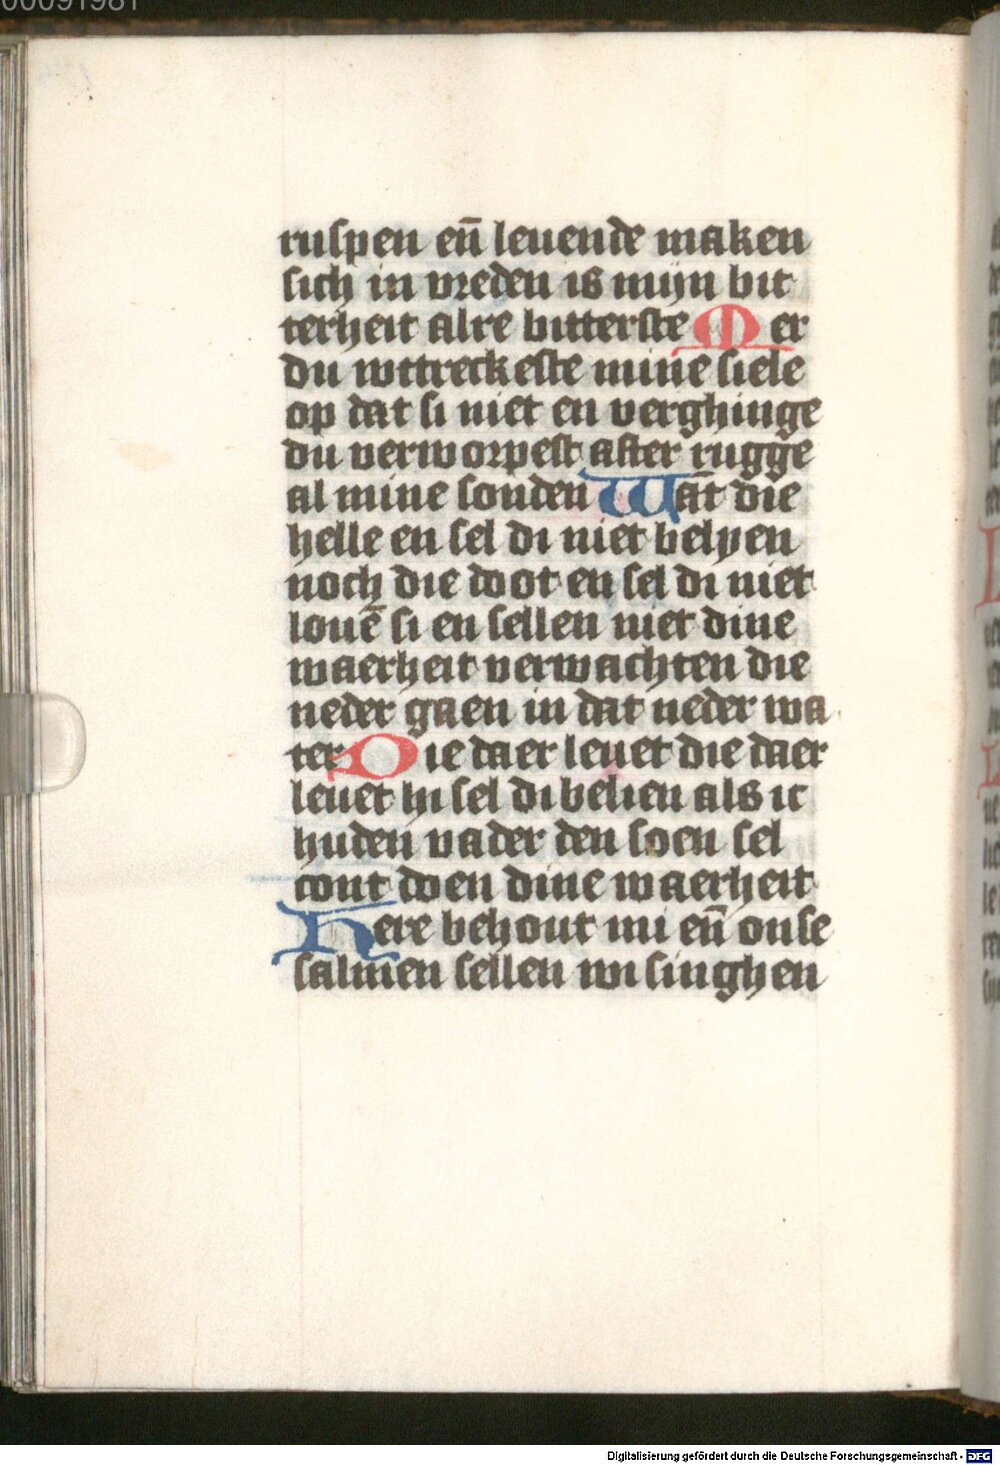 00091981
ruspen en̄ leuende maken
sich in vreden is mijn bit
terheit alre bitterste Mer
du wttreckeste mine siele
op dat si niet en verghinge
du verworpest after rugge
al mine sonden Wāt die
helle en sel di niet belyen
noch die doot en sel di niet
louē si en sellen niet dine
waerheit verwachten die
neder gaen in dat neder wa
ter Die daer leuet die daer
leuet hi sel di belien als ic
huden vader den soen sel
cont doen dine waerheit
Here behout mi en̄ onse
salmen sellen wi singhen
Digitalisierung gefördert durch die Deutsche Forschungsgemeinschaft - DFG